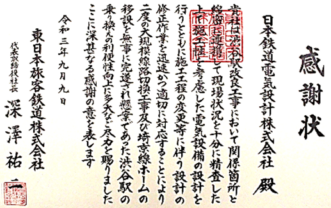 感謝状
日本鉄道電気設計株式会社 殿
貴社は渋谷駅改良工事において関係箇所と
綿密に連携して現場状況を十分に精査した
上で施工性を考慮した電気設備の設計を
行うとともに施工工程の変更等に伴う設計の
修正作業を迅速かつ適切に対応することにより
二度の大規模線路切換工事及び埼京線ホームの
移設を無事に完遂され懸案であった渋谷駅の
乗り換え利便性向上に多大なご尽力を賜りました
ここに深甚なる感謝の意を表します
令和三年九月九日
東日本旅客鉄道株式会社
代表取締役社長 深澤祐二